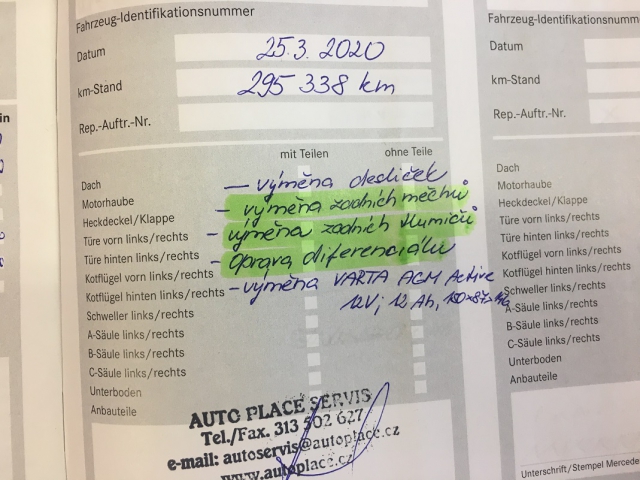 Fahrzeug-Identifikationsnummer
Datum 25.3.2020
km-Stand 295 338 km
Rep.-Auftr.-Nr.
mit Teilen ohne Teile
Dach
Motorhaube
Heckdeckel/Klappe
Türe vorn links/rechts
Türe hinten links/rechts
Kotflügel vorn links/rechts
Kotflügel hinten links/rechts
Schweller links/rechts
A-Säule links/rechts
B-Säule links/rechts
C-Säule links/rechts
Unterboden
Anbauteile
– výměna destiček
– výměna zadních měchů
– výměna zadních tlumičů
– oprava diferenciálu
– výměna VARTA AGM Active
12V; 12 Ah,
AUTO PLACE SERVIS
Tel./Fax. 313 502 627
e-mail: autoservis@autoplace.cz
www.autoplace.cz
Fahrzeug-Identifikationsnumm
Datum
km-Stand
Rep.-Auftr.-Nr.
Dach
Motorhaube
Heckdeckel/Klappe
Türe vorn links/rechts
Türe hinten links/rechts
Kotflügel vorn links/rechts
Kotflügel hinten links/rechts
Schweller links/rechts
A-Säule links/rechts
B-Säule links/rechts
C-Säule links/rechts
Unterboden
Anbauteile
Unterschrift/Stempel Mercede